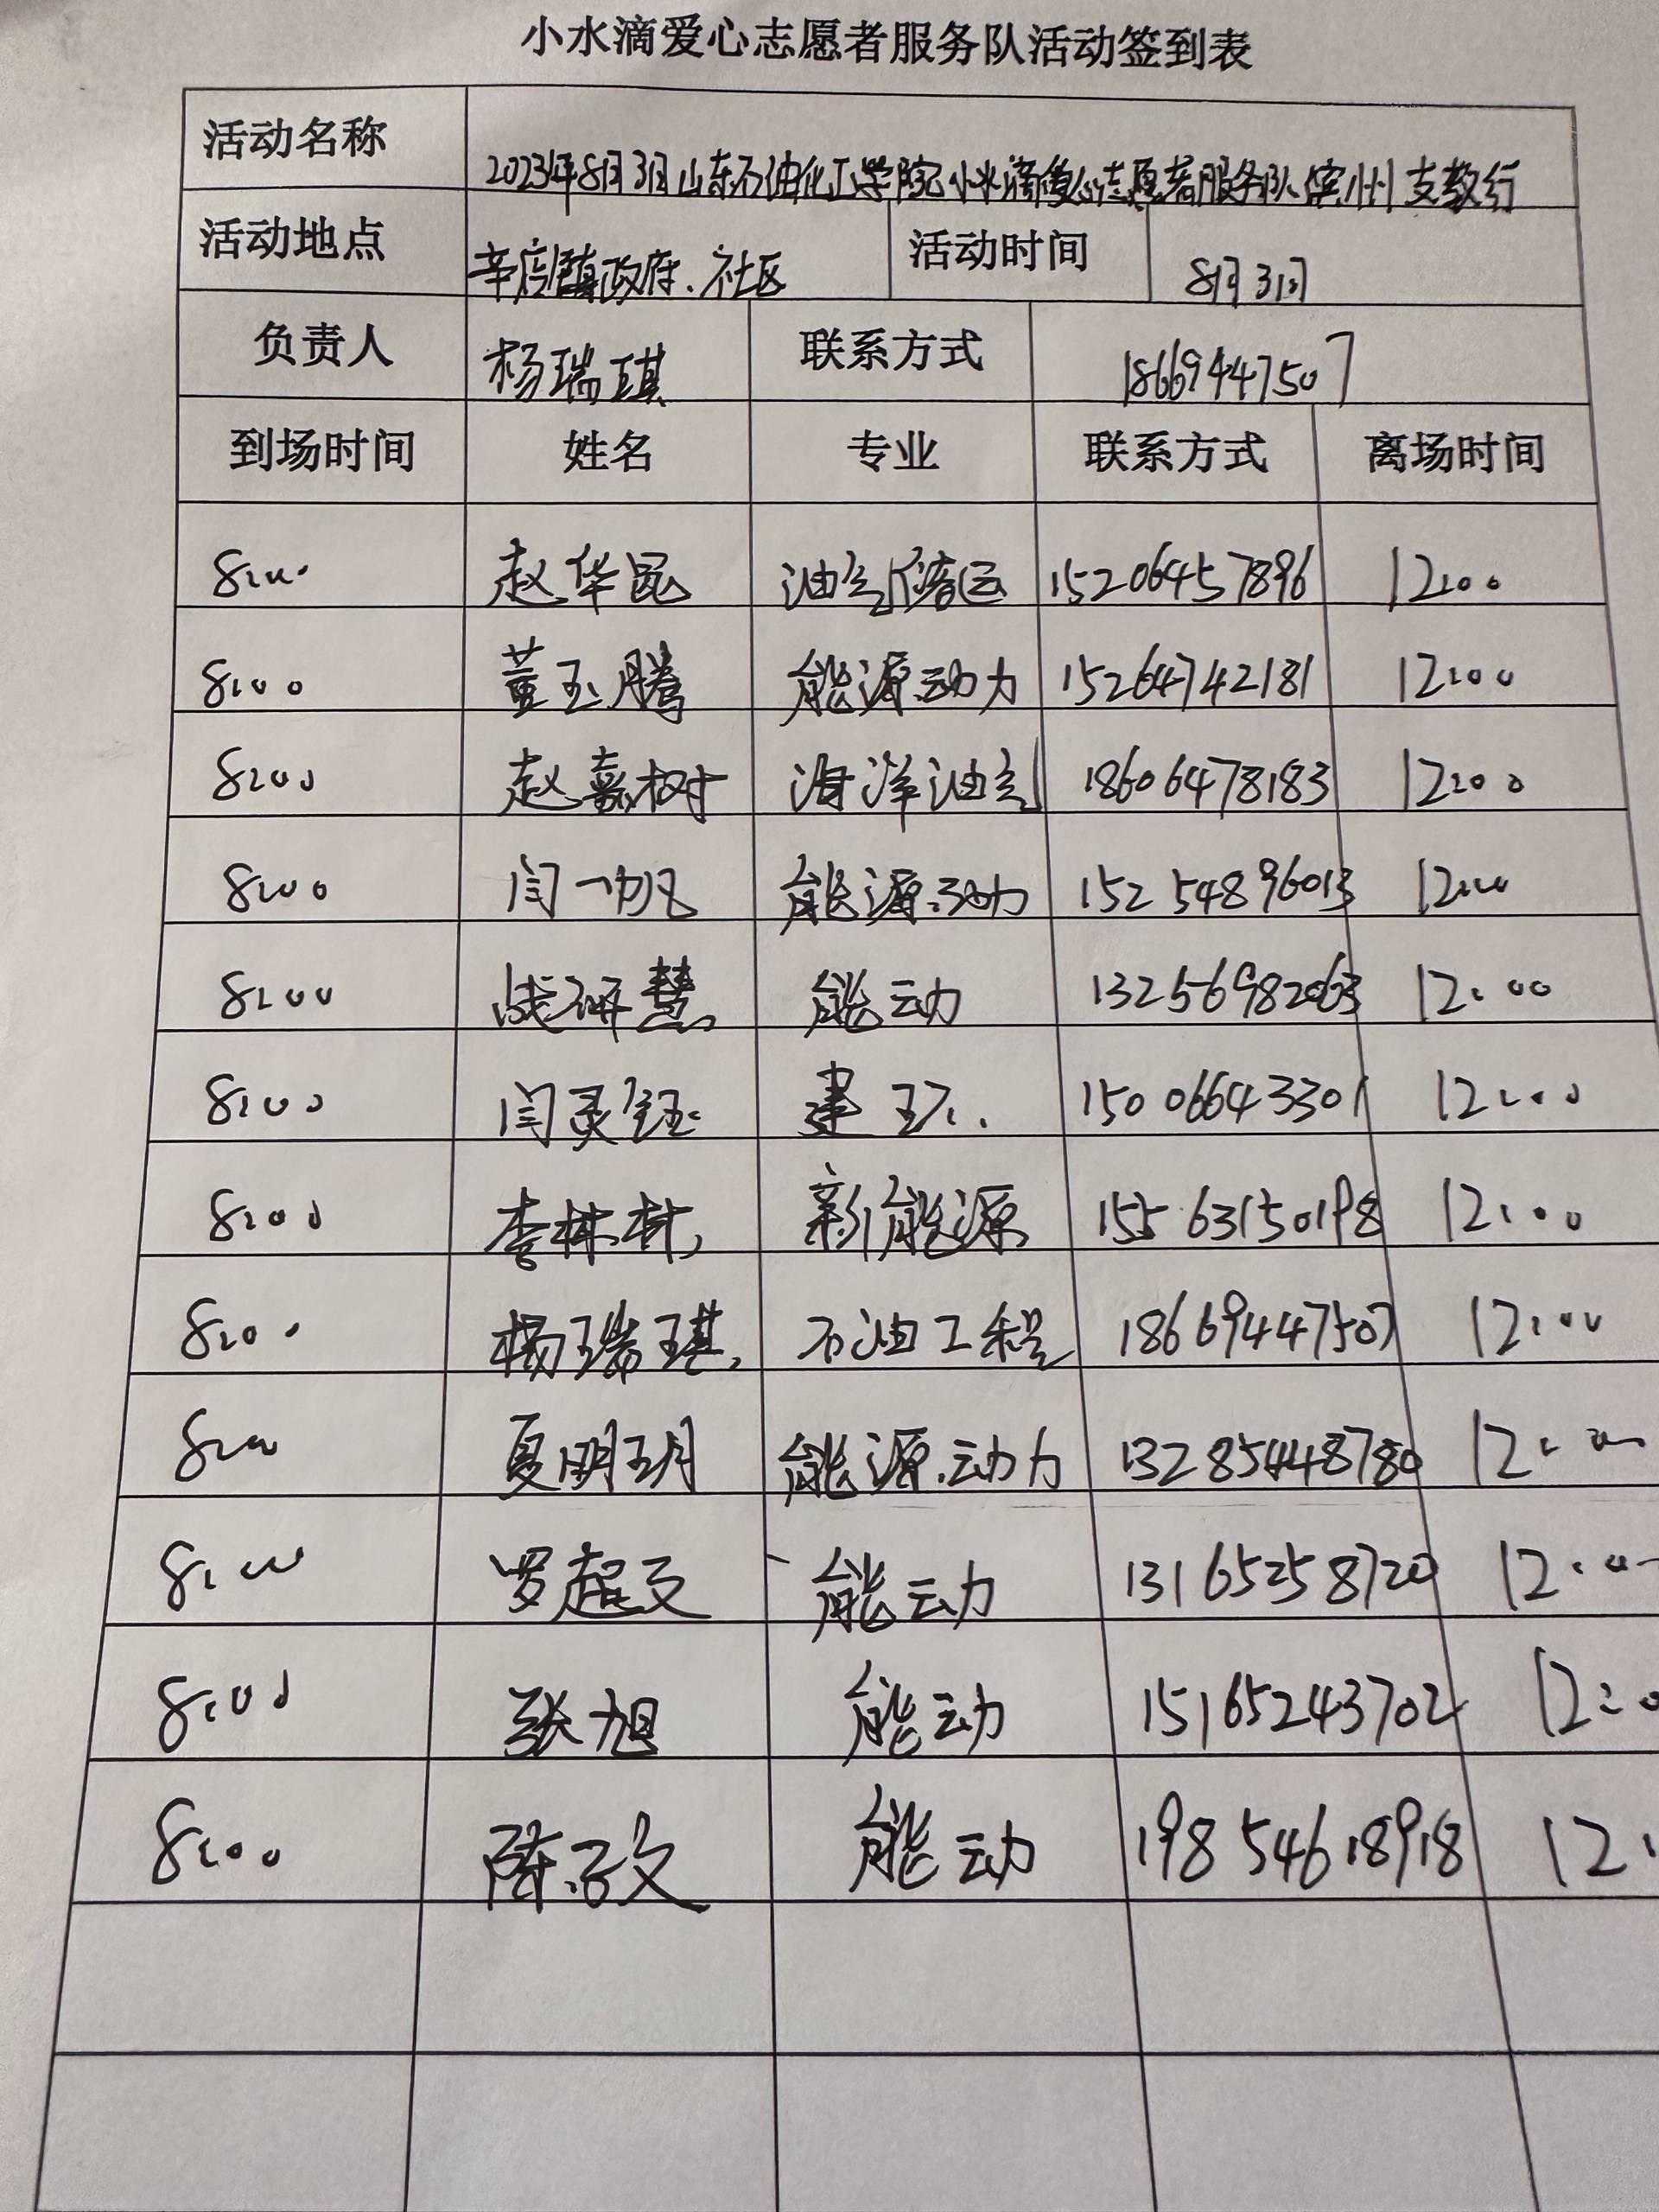 小水滴爱心志愿者服务队活动签到表
活动名称 2023年8月3日山东石油化工学院小水滴爱心志愿者服务队滨州支教行
活动地点 辛店镇政府、社区 活动时间 8月3日
负责人 杨瑞琪 联系方式 18669447507
到场时间 姓名 专业 联系方式 离场时间
8:00 赵华昆 油气储运 15206457896 12:00
8:00 董玉腾 能源动力 15264742181 12:00
8:00 赵嘉树 海洋油气 18606478183 12:00
8:00 闫一帆 能源动力 15254896013 12:00
8:00 战研慧 能动 13256982063 12:00
8:00 闫灵钰 建环 15006643301 12:00
8:00 李林林 新能源 15563150198 12:00
8:00 杨瑞琪 石油工程 18669447507 12:00
8:00 夏明玥 能源动力 13285448780 12:00
8:00 罗超文 能动 13165258720 12:00
8:00 张旭 能动 15165243702 12:0
8:00 陈子文 能动 19854618918 12: